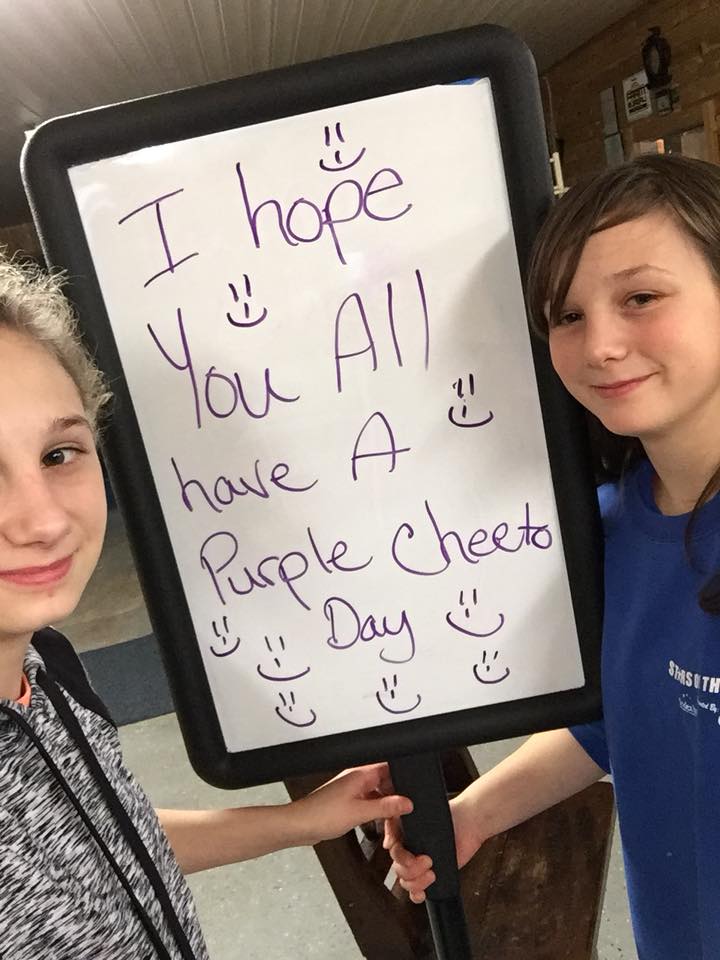 I hope
You All
have A
Purple Cheeto
Day